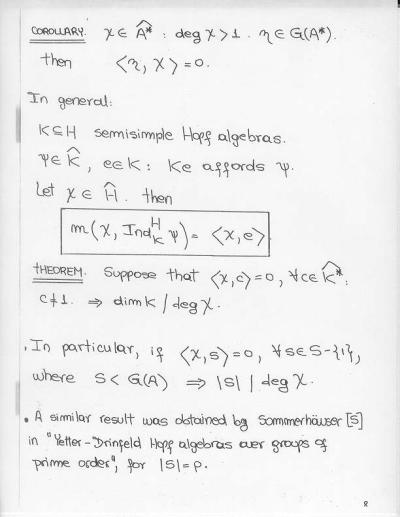 COROLLARY. χ ∈ Â* : deg χ > 1. η ∈ G(A*).
then ⟨η, χ⟩ = 0.
In general:
K ⊆ H semisimple Hopf algebras.
ψ ∈ K̂, e ∈ K : Ke affords ψ.
Let χ ∈ Ĥ. then
m(χ, Ind_K^H ψ) = ⟨χ, e⟩
THEOREM. Suppose that ⟨χ, c⟩ = 0, ∀ c ∈ K̂* :
c ≠ 1. ⇒ dim K / deg χ.
. In particular, if ⟨χ, s⟩ = 0, ∀ s ∈ S - {1},
where S < G(A) ⇒ |S| | deg χ.
• A similar result was obtained by Sommerhäuser [S]
in "Yetter-Drinfeld Hopf algebras over groups of
prime order", for |S| = p.
8